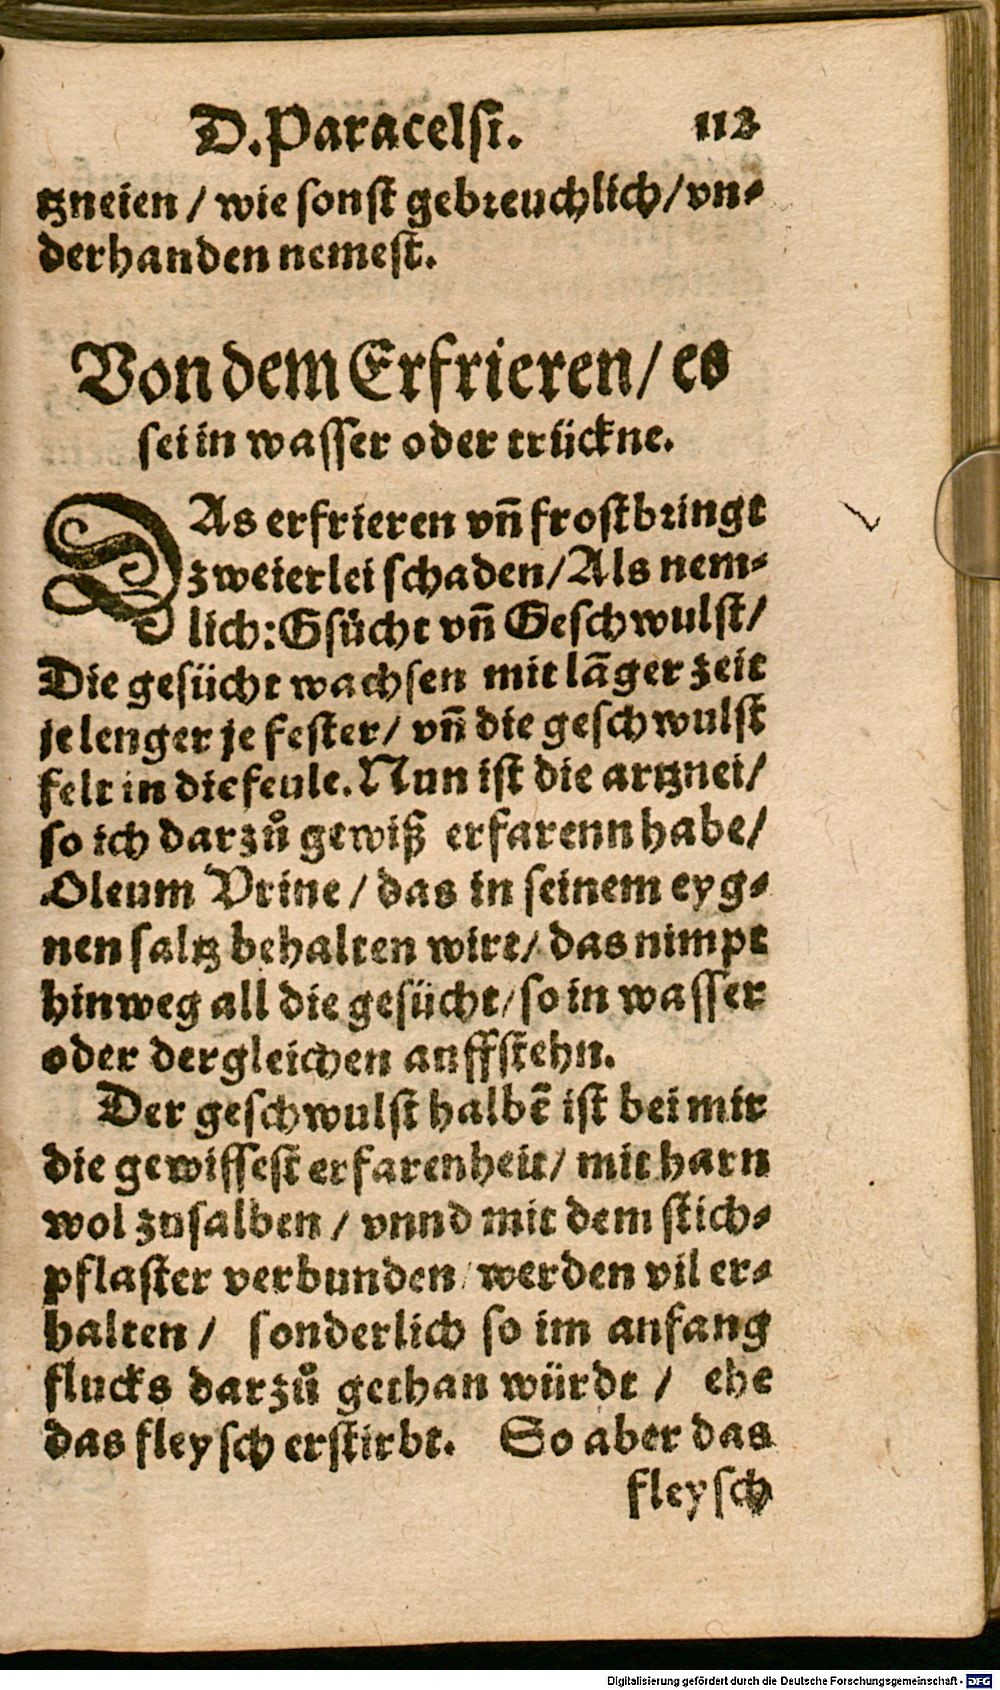 D. Paracelsi. 113
tzneien / wie sonst gebreuchlich / vn⸗
derhanden nemest.
Von dem Erfrieren / es
sei in wasser oder trückne.
DAs erfrieren vñ frost bringt
zweierlei schaden / Als nem⸗
lich: Gsücht vñ Geschwulst /
Die gesücht wachsen mit lãger zeit
je lenger je fester / vñ die geschwulst
felt in die feule. Nun ist die artznei /
so ich darzů gewiß erfarenn habe /
Oleum Vrine / das in seinem eyg⸗
nen saltz behalten wirt / das nimpt
hinweg all die gesücht / so in wasser
oder dergleichen auffstehn.
Der geschwulst halbẽ ist bei mir
die gewissest erfarenheit / mit harn
wol zusalben / vnnd mit dem stich⸗
pflaster verbunden / werden vil er⸗
halten / sonderlich so im anfang
flucks darzů gethan würdt / ehe
das fleysch erstirbt. So aber das
fleysch
Digitalisierung gefördert durch die Deutsche Forschungsgemeinschaft - DFG